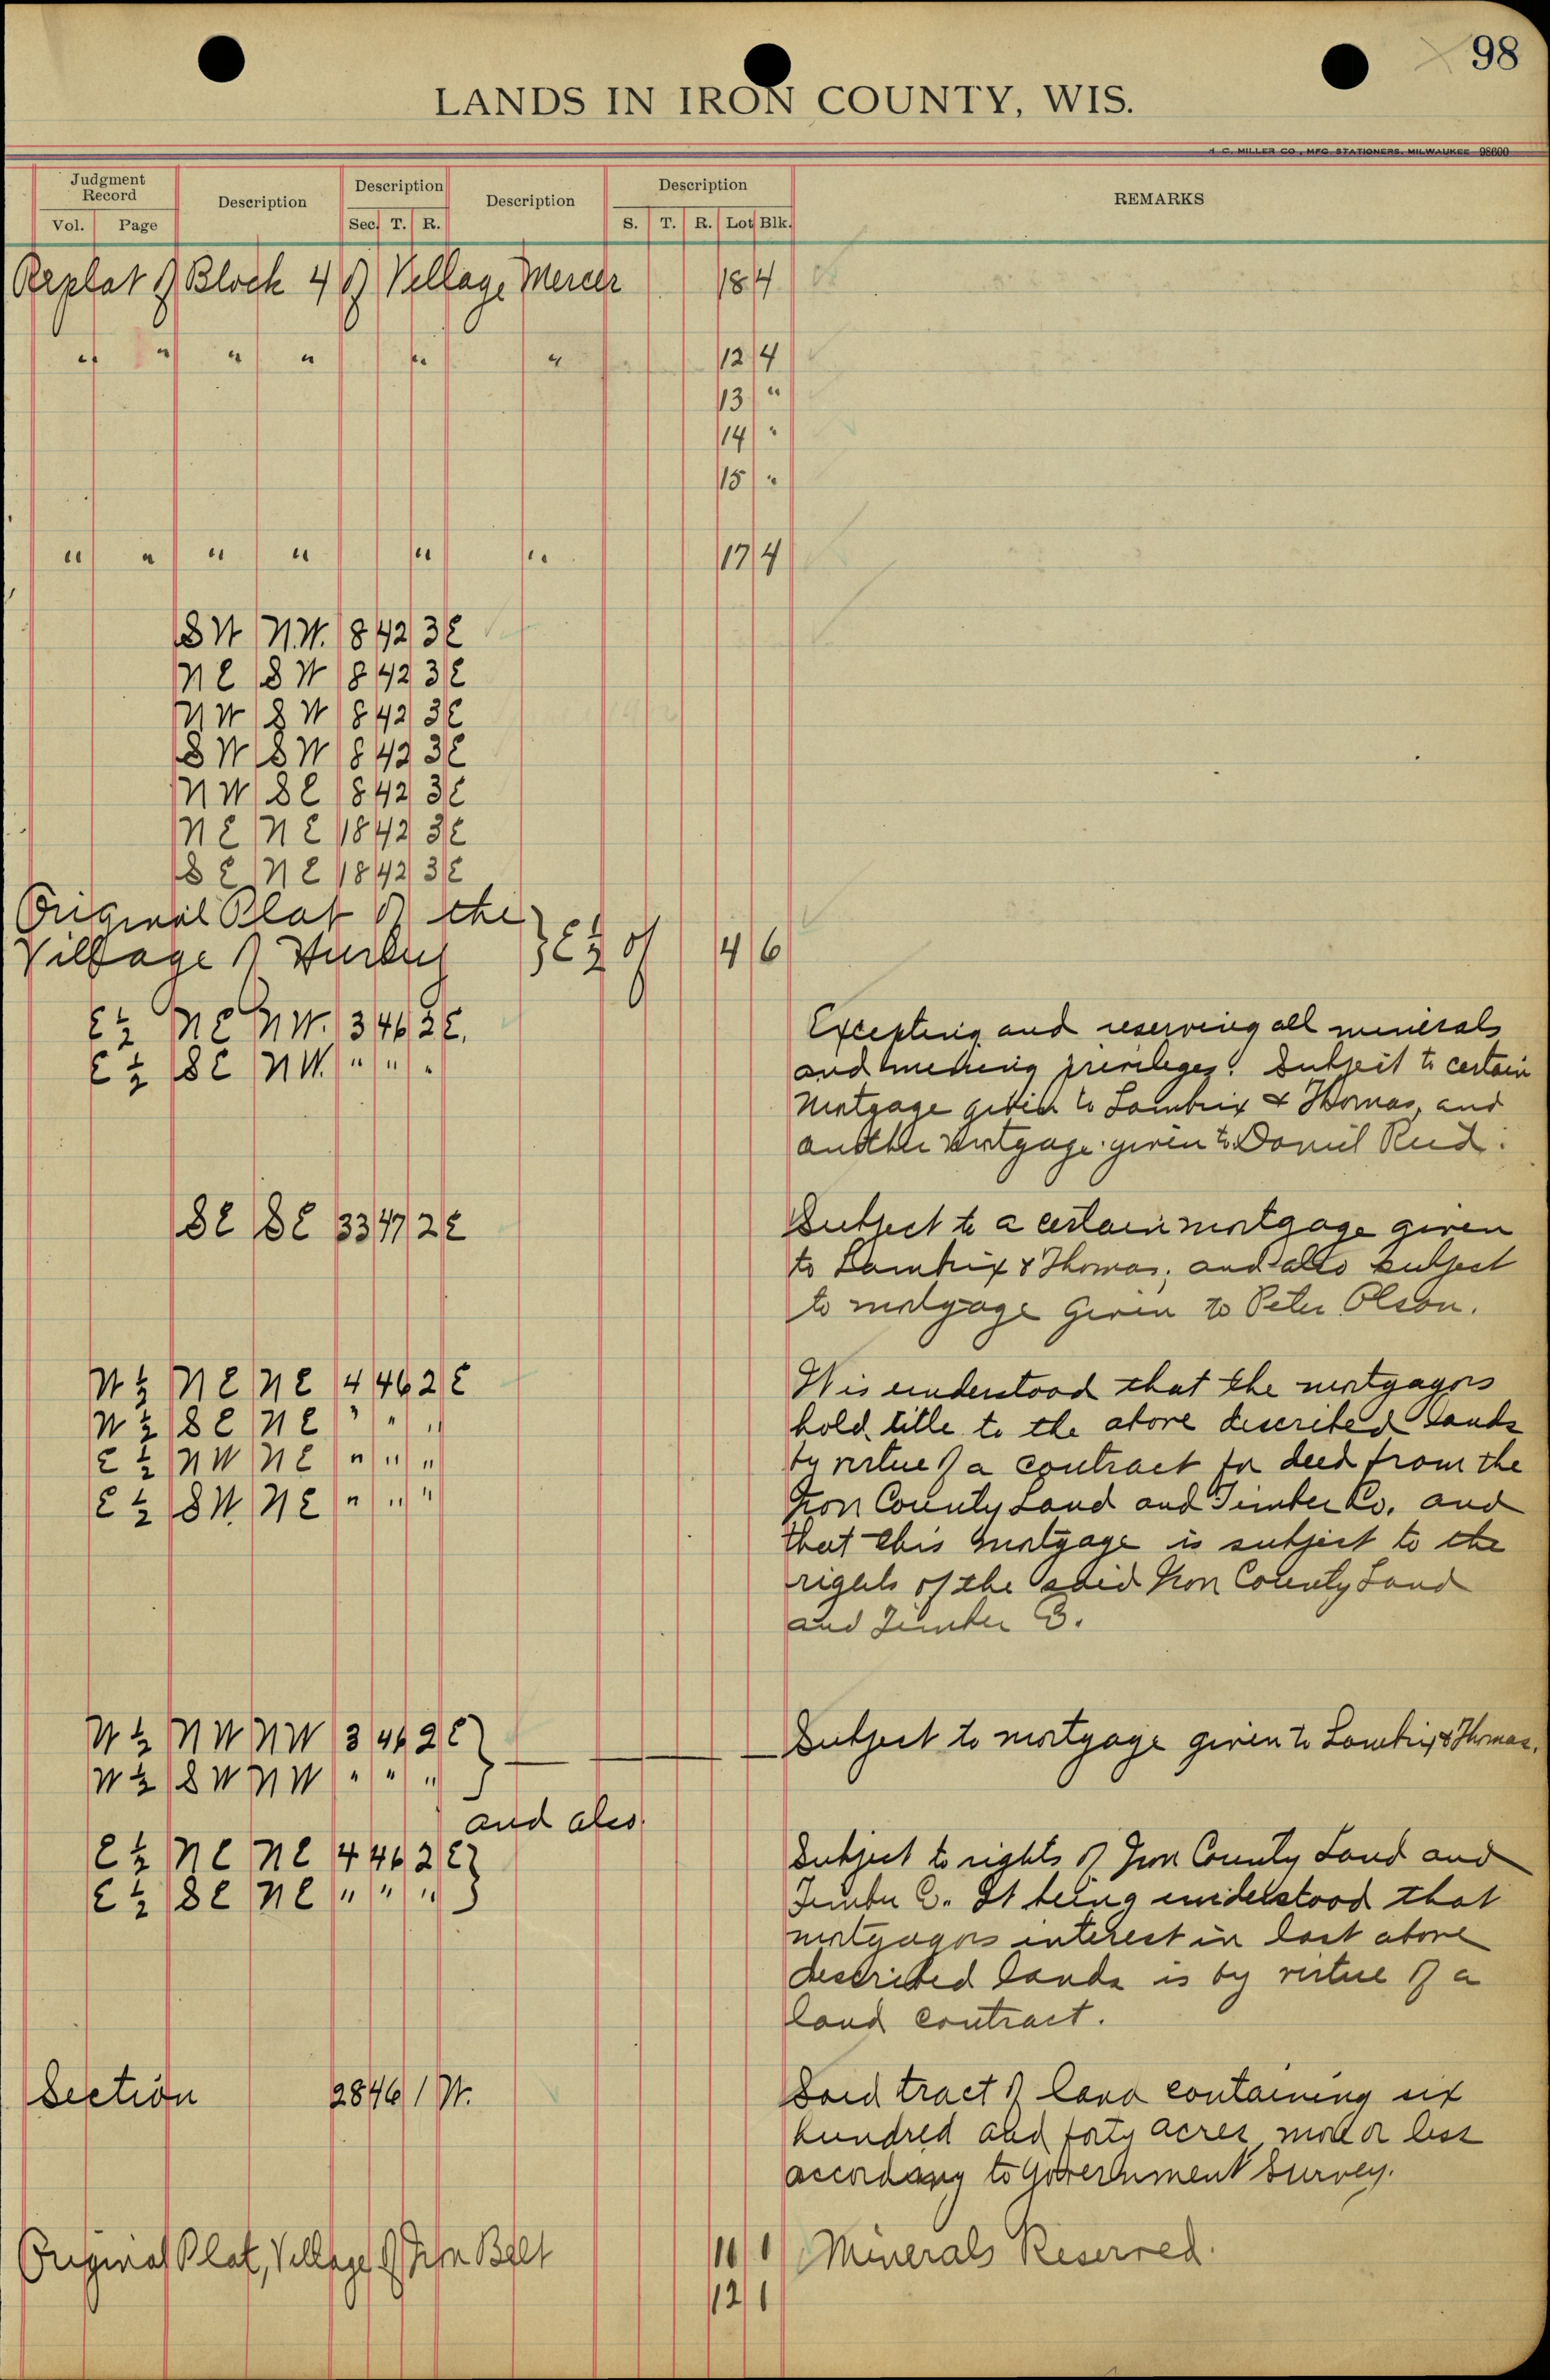 98
LANDS IN IRON COUNTY, WIS.
H. C. MILLER CO., MFG. STATIONERS, MILWAUKEE 98600
Judgment Record Description Description Description Description REMARKS
Vol. Page Sec. T. R. S. T. R. Lot Blk.
Replat of Block 4 of Village Mercer 18 4
" " " " " " 12 4
13 "
14 "
15 "
" " " " " " 17 4
SW N.W. 8 42 3E
NE SW 8 42 3E
NW SW 8 42 3E
SW SW 8 42 3E
NW SE 8 42 3E
NE NE 18 42 3E
SE NE 18 42 3E
Original Plat of the
Village of Hurley } E½ of 4 6
E½ NE NW. 3 46 2E.
E½ SE NW. " " "
Excepting and reserving all minerals
and mining privileges. Subject to certain
mortgage given to Lambrix & Thomas, and
another mortgage given to Daniel Reid.
SE SE 33 47 2E
Subject to a certain mortgage given
to Lambrix & Thomas; and also subject
to mortgage given to Peter Olson.
W½ NE NE 4 46 2E
W½ SE NE " " "
E½ NW NE " " "
E½ SW. NE " " "
It is understood that the mortgagors
hold title to the above described lands
by virtue of a contract for deed from the
Iron County Land and Timber Co. and
that this mortgage is subject to the
rights of the said Iron County Land
and Timber Co.
W½ NW NW 3 46 2E }
W½ SW NW " " " } Subject to mortgage given to Lambrix & Thomas.
and also
E½ NE NE 4 46 2E }
E½ SE NE " " " }
Subject to rights of Iron County Land and
Timber Co. It being understood that
mortgagors interest in last above
described lands is by virtue of a
land contract.
Section 28 46 1 W.
Said tract of land containing six
hundred and forty acres, more or less
according to Government Survey.
Original Plat, Village of Iron Belt 11 1 Minerals Reserved.
12 1